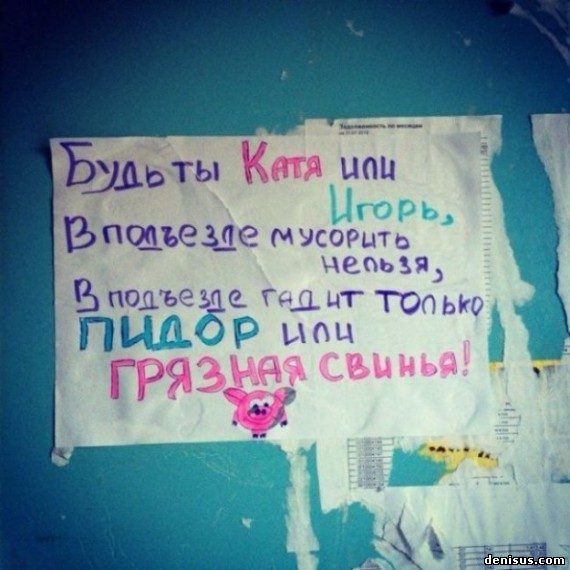 Задолженность по месяцам
Будь ты Катя или
Игорь,
В подъезде мусорить
нельзя,
В подъезде гадит только
ПИДОР или
ГРЯЗНАЯ СВИНЬЯ!
denisus.com